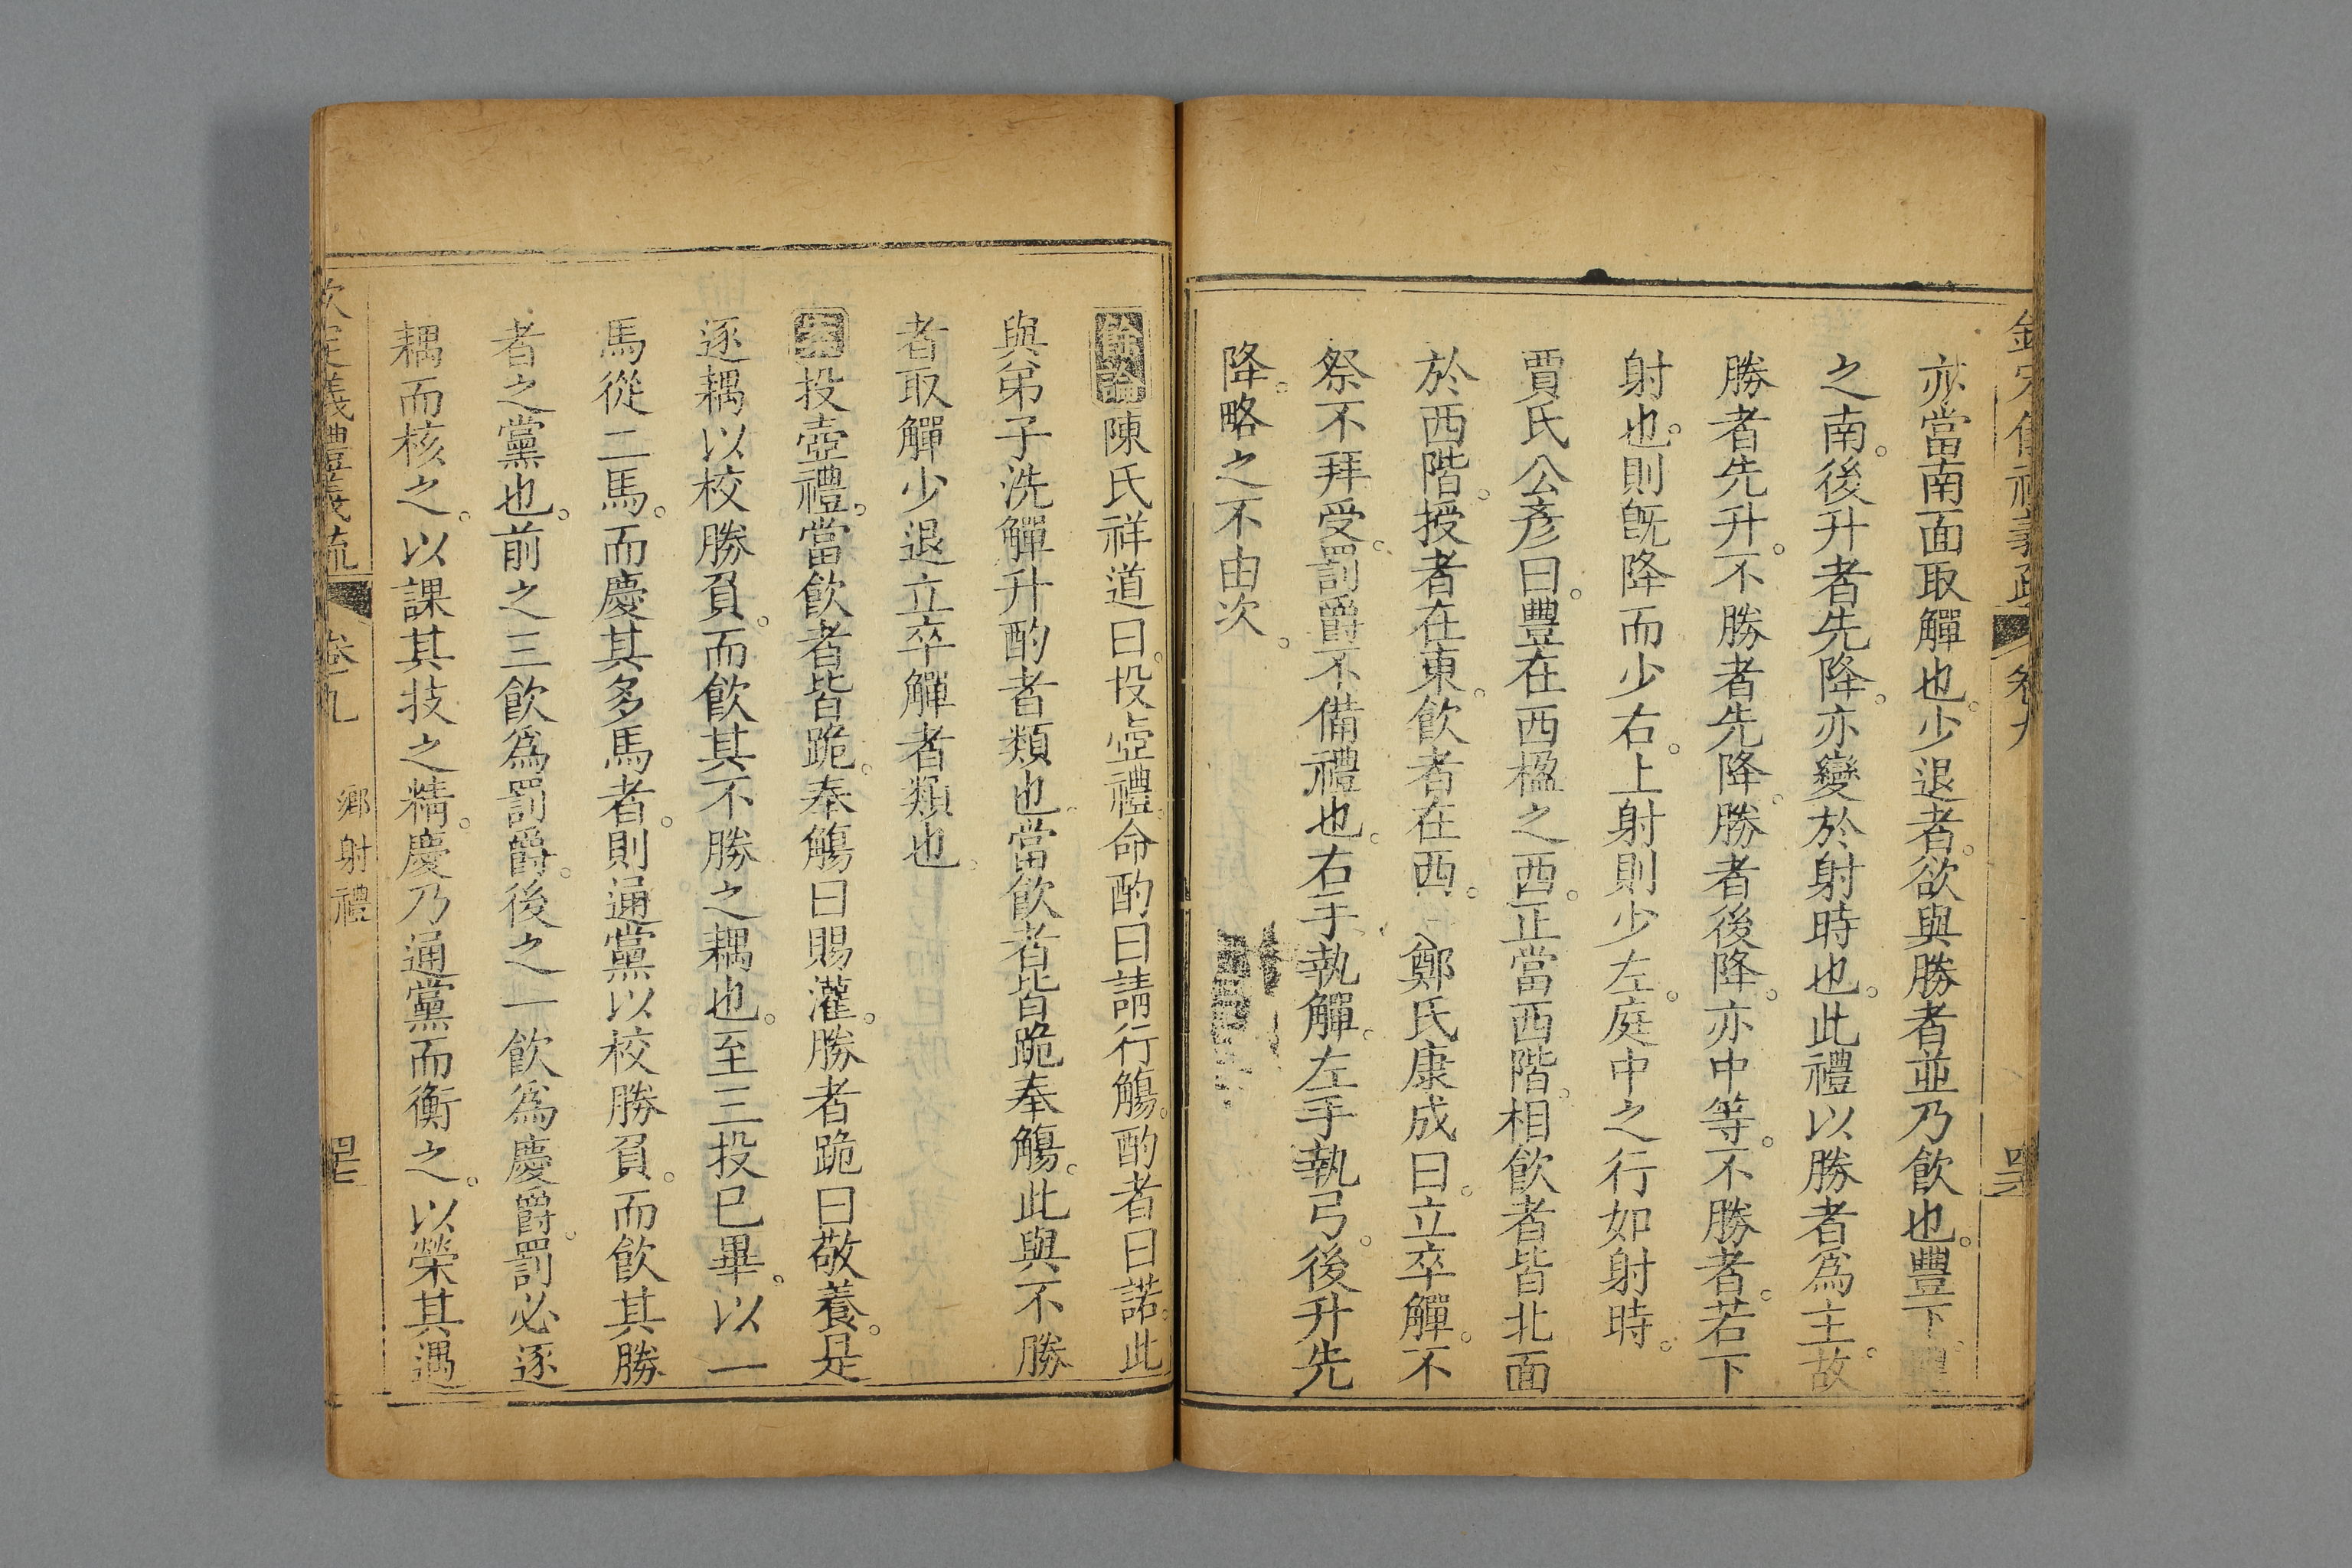 欽定儀禮義疏 卷九
亦當南面取觶也。少退者。欲與勝者並乃飲也。豐下。
之南。後升者先降。亦變於射時也。此禮以勝者爲主。故
勝者先升。不勝者先降。勝者後降。亦中等。不勝者。若下
射也。則既降而少右。上射則少左。庭中之行如射時。
賈氏公彥曰。豐在西楹之西。正當西階。相飲者皆北面
於西階。授者在東。飲者在西。 鄭氏康成曰。立卒觶。不
祭不拜受。罰爵不備禮也。右手執觶。左手執弓。後升先
降。略之不由次。
餘論陳氏祥道曰。投壺禮。命酌曰請行觴。酌者曰諾。此
與弟子洗觶升酌者類也。當飲者皆跪奉觴。此與不勝
者取觶少退立卒觶者類也。
案投壺禮。當飲者皆跪。奉觴曰賜灌。勝者跪曰敬養。是
逐耦以校勝負。而飲其不勝之耦也。至三投已畢。以一
馬從二馬。而慶其多馬者。則通黨以校勝負。而飲其勝
者之黨也。前之三飲爲罰爵。後之一飲爲慶爵。罰必逐
耦而核之。以課其技之精。慶乃通黨而衡之。以榮其遇
欽定義禮義疏 卷九 鄉射禮 四七